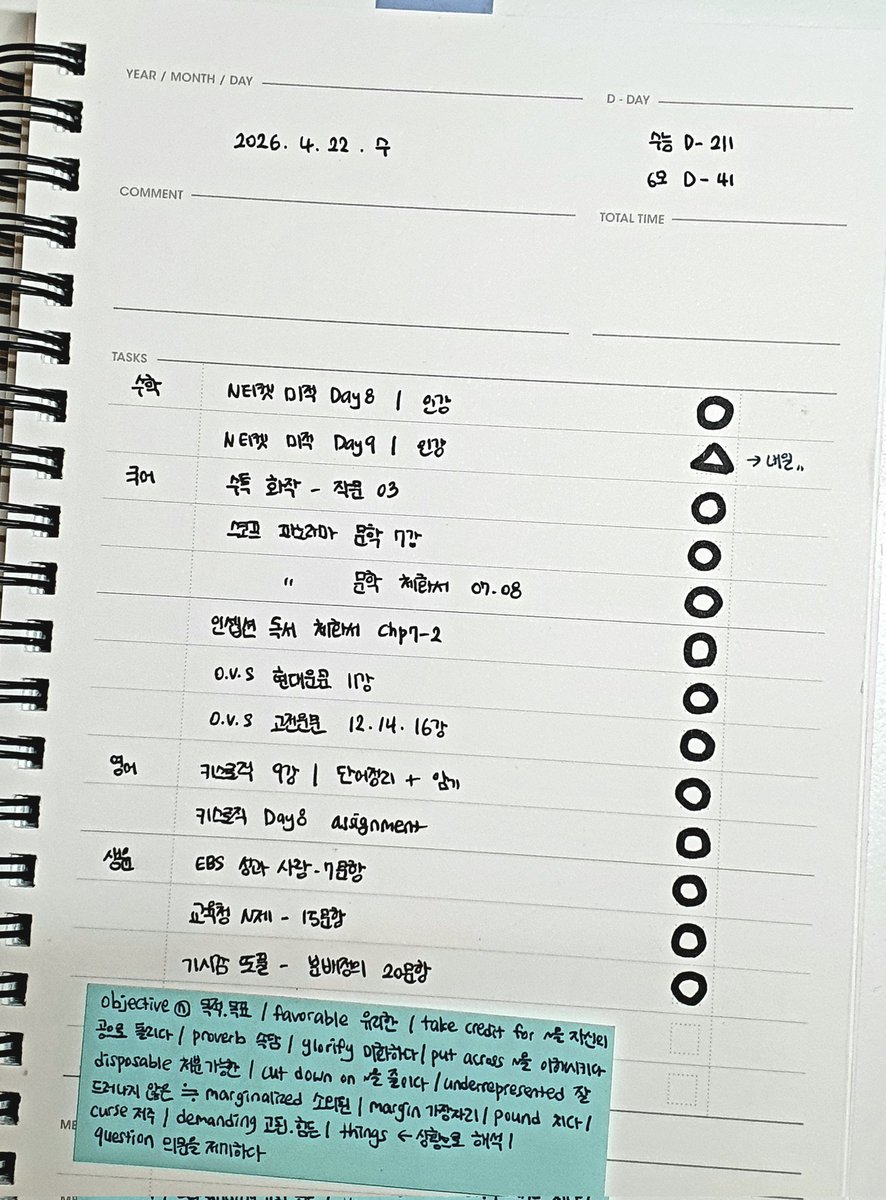 YEAR / MONTH / DAY
D - DAY
2026. 4. 22 . 수
수능 D- 211
6모 D - 41
COMMENT
TOTAL TIME
TASKS
수학 N티켓 미적 Day 8 | 인강
N티켓 미적 Day 9 | 인강 → 내일,,
국어 수특 화작 - 작문 03
스코프 파노라마 문학 7강
" 문학 체화서 07.08
인셉션 독서 체화서 Chp7-2
O.V.S 현대운문 11강
O.V.S 고전운문 12.14.16강
영어 키스로직 9강 | 단어정리 + 암기
키스로직 Day 8 assignment
생윤 EBS 성과 사랑 - 7문항
교육청 N제 - 15문항
기시감 또풀 - 분배정의 20문항
objective ⓝ 목적.목표 / favorable 유리한 / take credit for ~을 자신의
공으로 돌리다 / proverb 속담 / glorify 미화하다 / put across ~을 이해시키다
disposable 처분가능한 / cut down on ~을 줄이다 / underrepresented 잘
드러나지 않은 ≒ marginalized 소외된 / margin 가장자리 / pound 치다 /
curse 저주 / demanding 고된.힘든 / things ← 상황으로 해석 /
question 의문을 제기하다
ME